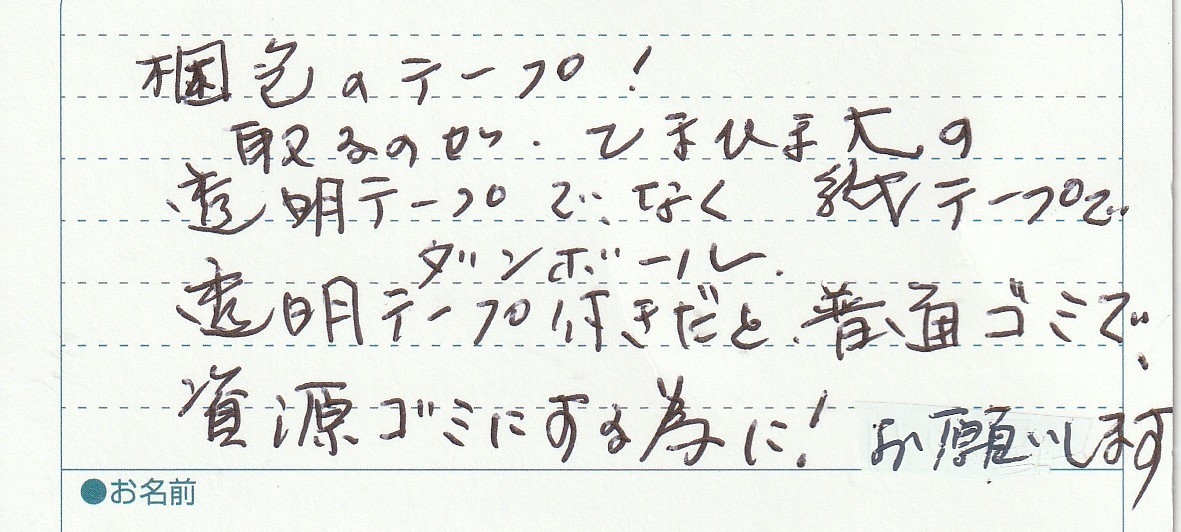 梱包のテープ!
取るのが、てまひま大の
透明テープで、なく 紙テープで
ダンボール、
透明テープ付きだと、普通ゴミで、
資源ゴミにする為に! お願いします
●お名前